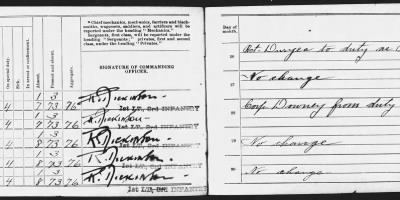 * Chief mechanics, mechanics, farriers and black-
smiths, wagoners, saddlers, and artificers will be
reported under the heading "Mechanics."
Sergeants, first class, will be reported under the
heading "Sergeants;" privates, first and second
class, under the heading "Privates."
On special duty.
Sick.
In arrest or confinement.
Absent.
Present and absent.
Aggregate.
SIGNATURE OF COMMANDING
OFFICER.
1 3
4 7 73 76 R. Dickinson
1st LT, 3rd INFANTRY
1 3
4 7 73 76 R. Dickinson
1st LT, 3rd INFANTRY
1 3
4 8 73 76 R. Dickinson
1st LT, 3rd INFANTRY
1 3
4 8 73 76 R. Dickinson
1st LT, 3rd INFANTRY
1 3
4 8 73 76 R. Dickinson
1st LT, 3rd INFANTRY
Day of
month.
26 to duty as
27 No change
28 Corp Downey from duty
29 No change
30 No change